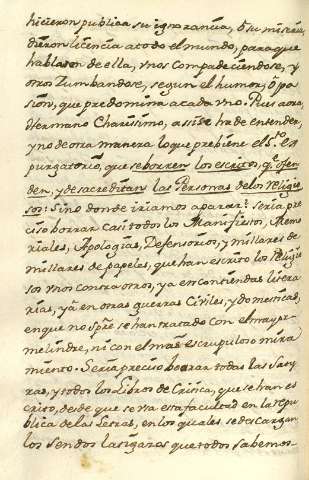 hicieron publica su ignorancia, ò su miseria,
dieron licencia a todo el mundo, para que
hablasen de ella, vnos compadeciendose, y
otros Zumbandose, segun el humor, ò pa
sión, que predomina a cada vno. Pues aora,
Hermano Charissimo, assi se ha de entender,
y no de otra manera lo que prebiene el S.to ex
purgatorio, que se borren los escritos, q.e ofen
den, y desacreditan las Personas de los Religio
sos: Sino donde iriamos a parar? Seria pre
ciso borrar casi todos los Manifiestos, Memo
riales, Apologias, Defensorios, y millares de
millares de papeles, que han escrito los Religio
sos vnos contra otros, ya en contiendas litera
rias, yà en otras guerras Civiles, y domesticas,
en que no spre se han tratado con el mayor
melindre, ni con el mas escrupuloso mira
miento. Seria preciso borrar todas las Saty
ras, y todos los Libros de Critica, que se han es
crito, desde que se vsa esta facultad en la repu
blica de las Letras, en los quales se descargan
los sendos latigazos que todos sabemos.